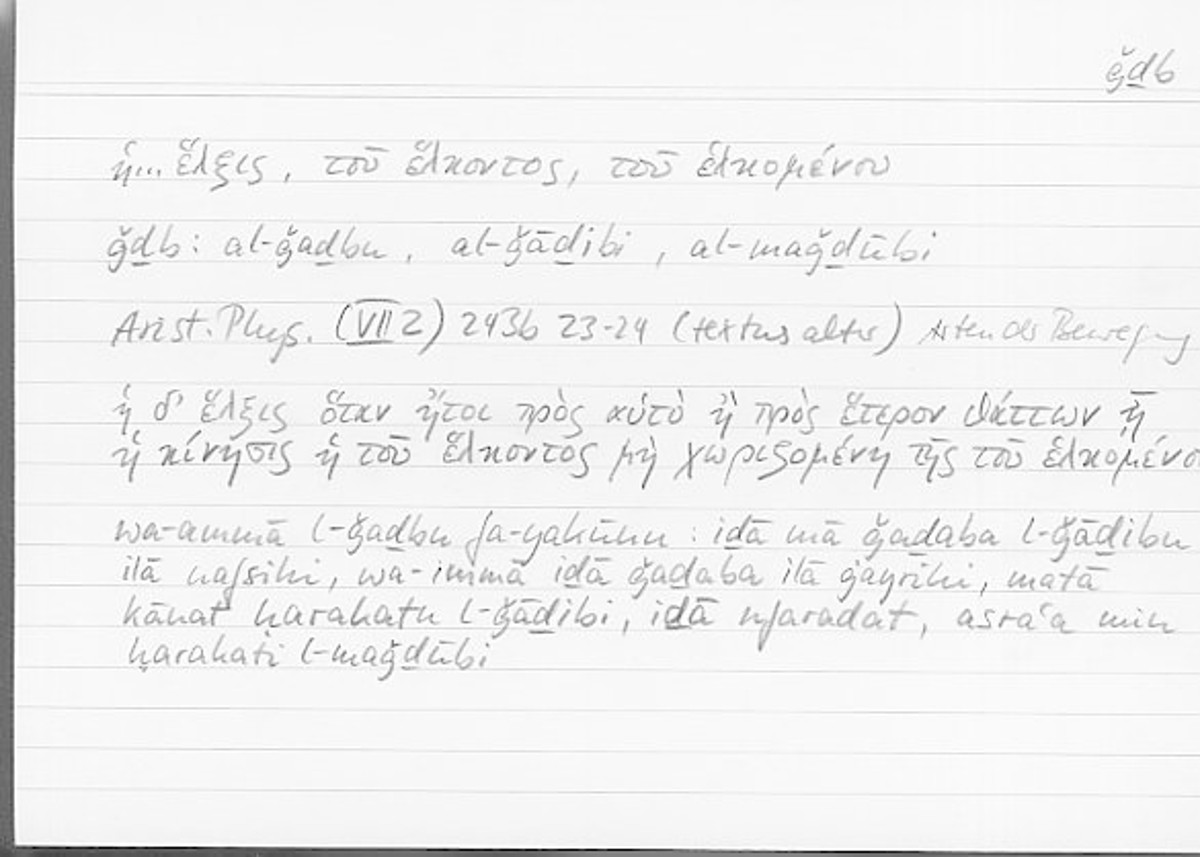 ǧḏb
ἡ... ἕλξις, τοῦ ἕλκοντος, τοῦ ἑλκομένου
ǧḏb: al-ǧaḏbu, al-ǧāḏibi, al-maǧḏūbi
Arist. Phys. (VII 2) 243b 23-24 (textus alter) Arten der Bewegung
ἡ δ' ἕλξις ὅταν ἤτοι πρὸς αὑτὸ ἢ πρὸς ἕτερον θάττων ᾖ
ἡ κίνησις ἡ τοῦ ἕλκοντος μὴ χωριζομένη τῆς τοῦ ἑλκομένο
wa-ammā l-ǧaḏbu fa-yakūnu: iḏā mā ǧaḏaba l-ǧāḏibu
ilā nafsihi, wa-immā iḏā ǧaḏaba ilā ġayrihi, matā
kānat ḥarakatu l-ǧāḏibi, iḏā nfaradat, asraʿa min
ḥarakati l-maǧḏūbi